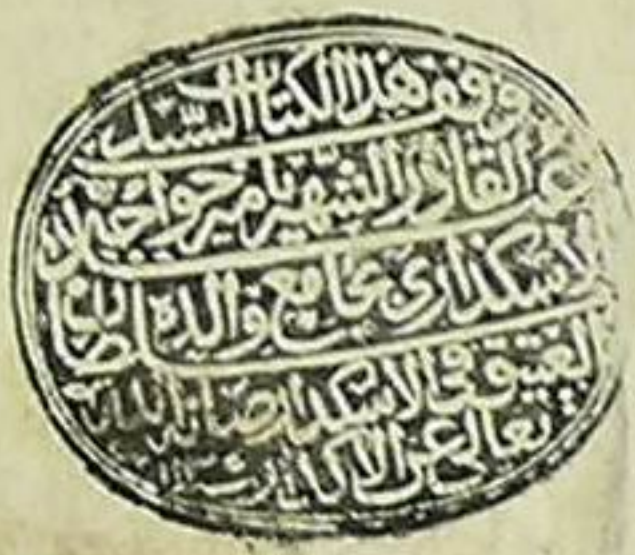 وقف هذا الكتاب السيد
عبد القادر الشهير بامير خواجه
الاسكداري بجامع والده سلطان
العتيق في الاسكدار الله
تعالى عن الاكدار سنة